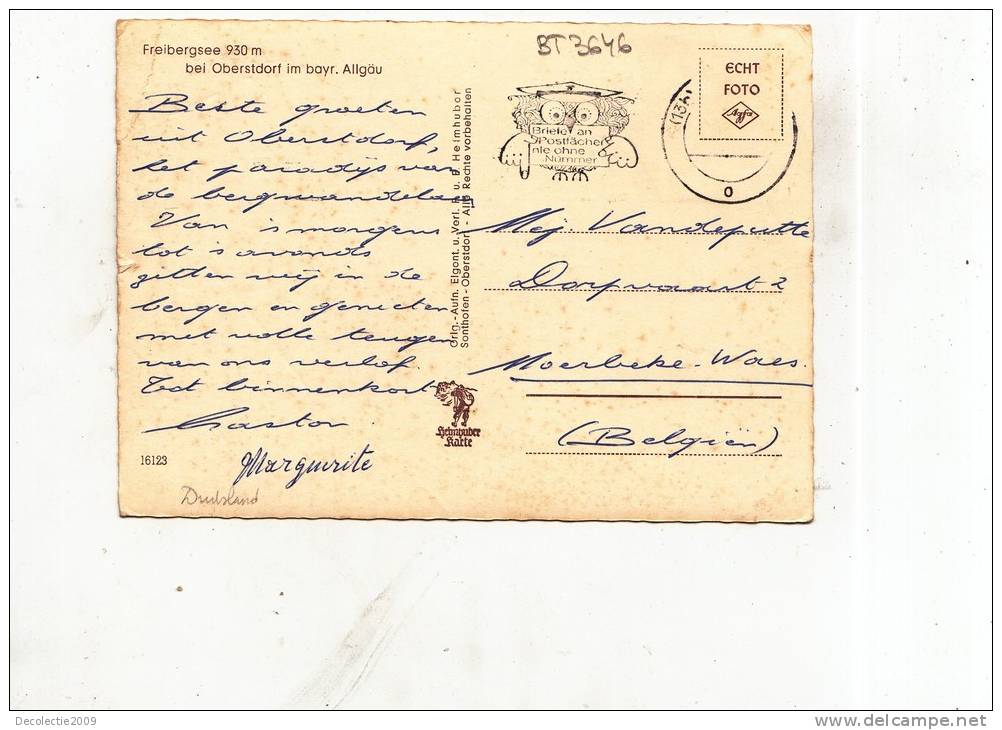 BT3646
Freibergsee 930 m
bei Oberstdorf im bayr. Allgäu
Beste groeten
uit Oberstdorf,
het paradijs van
de bergwandelaar
Van 's morgens
tot 's avonds
zitten wij in de
bergen en genieten
met volle teugen
van ons verlof.
Tot binnenkort
Gaston
Marguerite
16123
Duitsland
Orig.-Aufn. Eigent. u. Verl. F. u. E. Heimhuber
Sonthofen - Oberstdorf - Alle Rechte vorbehalten
Heimhuber
Karte
Briefe an
Postfächer
nie ohne
Nummer
(13b)
o
ECHT
FOTO
Agfa
Mej. Vandeputte
Dorpvaart 2
Moerbeke-Waes.
(Belgiën)
Decolectie2009
www.delcampe.net